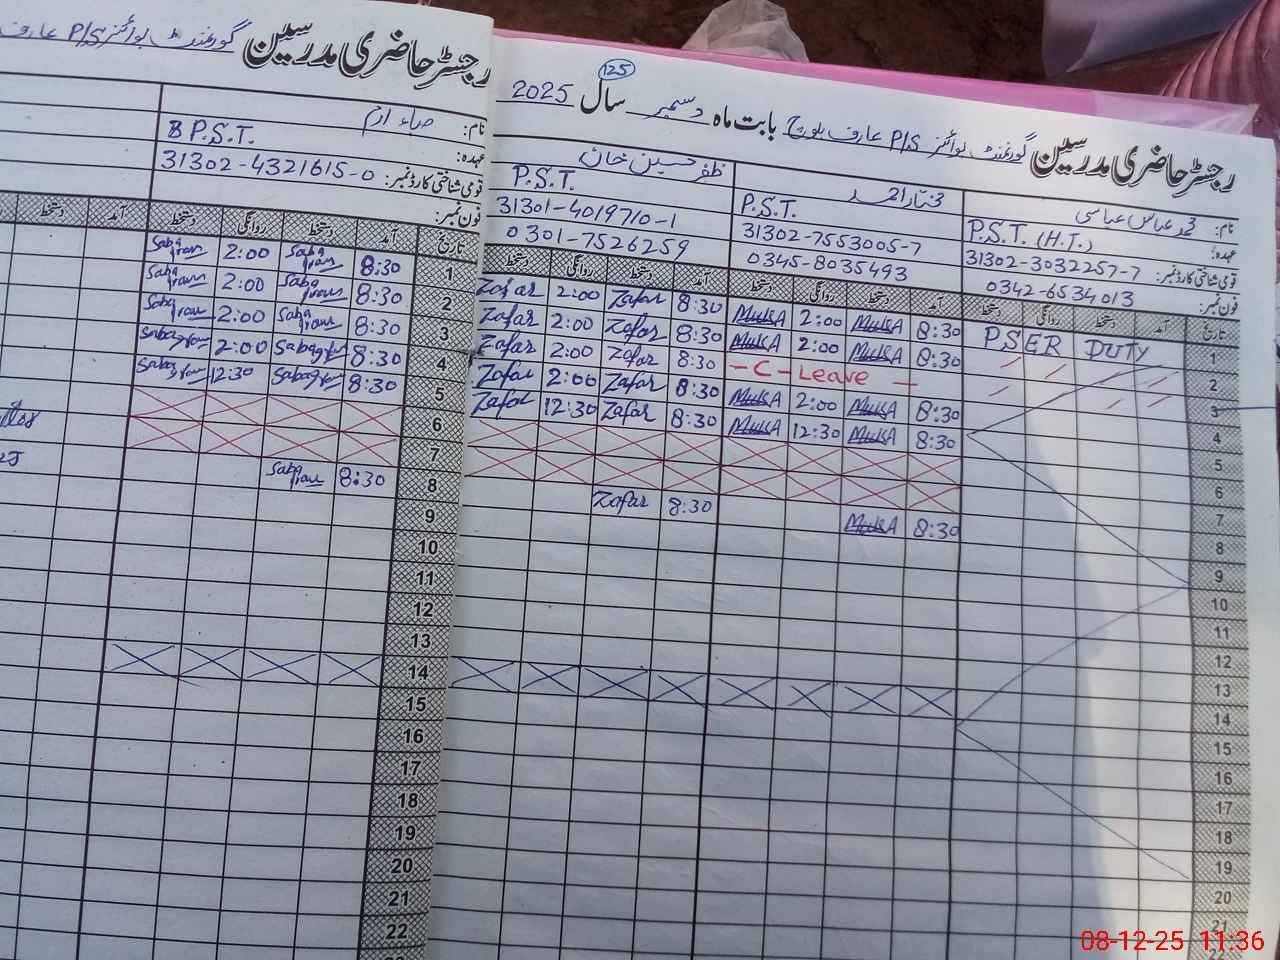 رجسٹر حاضری مدرسین گورنمنٹ بوائز P/S عارف بلوچ بابت ماہ دسمبر سال 2025
125
نام: محمد عباس عباسی
عہدہ: P.S.T. (H.T.)
قومی شناختی کارڈ نمبر: 31302-3032257-7
فون نمبر: 0342-6534013
مختار احمد
P.S.T.
31302-7553005-7
0345-8035493
ظفر حسین خان
P.S.T.
31301-4019710-1
0301-7526259
تاریخ آمد دستخط روانگی دستخط آمد دستخط روانگی دستخط آمد دستخط روانگی دستخط
1 PSER DUTY 8:30 MukA 2:00 MukA 8:30 Zafar 2:00 Zafar
2 8:30 MukA 2:00 MukA 8:30 Zafar 2:00 Zafar
3 - C - Leave - 8:30 Zafar 2:00 Zafar
4 8:30 MukA 2:00 MukA 8:30 Zafar 2:00 Zafar
5 8:30 MukA 12:30 MukA 8:30 Zafar 12:30 Zafar
6
7
8 8:30 MukA 8:30 Zafar
9
10
11
12
13
14
15
16
17
18
19
20
21
22
رجسٹر حاضری مدرسین گورنمنٹ بوائز P/S عارف
نام: صباء ارم
عہدہ: P.S.T.
قومی شناختی کارڈ نمبر: 31302-4321615-0
فون نمبر:
تاریخ آمد دستخط روانگی دستخط آمد دستخط
1 8:30 Saba Iram 2:00 Saba Iram
2 8:30 Saba Iram 2:00 Saba Iram
3 8:30 Saba Iram 2:00 Saba Iram
4 8:30 Saba Iram 2:00 Saba Iram
5 8:30 Saba Iram 12:30 Saba Iram
6
7
8 8:30 Saba Iram
9
10
11
12
13
14
15
16
17
18
19
20
21
22
08-12-25 11:36